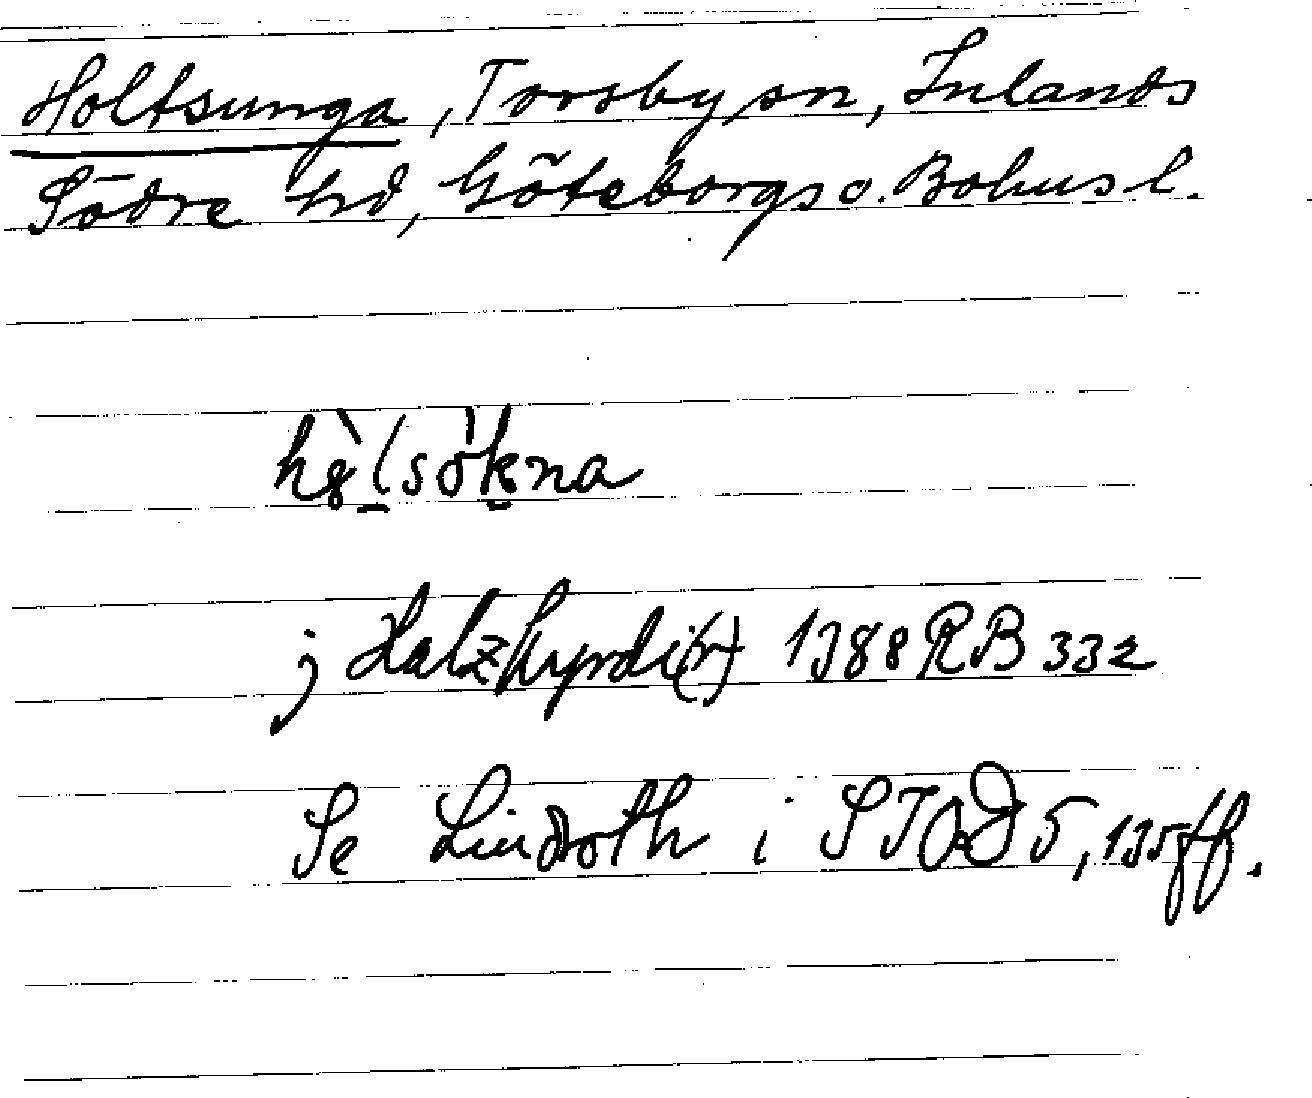 Holtsunga, Torsby sn, Inlands
Södre hd, Göteborgs o. Bohus l.
hə̀ḷsökna
j Halzkyndi(r) 1388 RB 332
Se Lindroth i STOD 5, 135 ff.